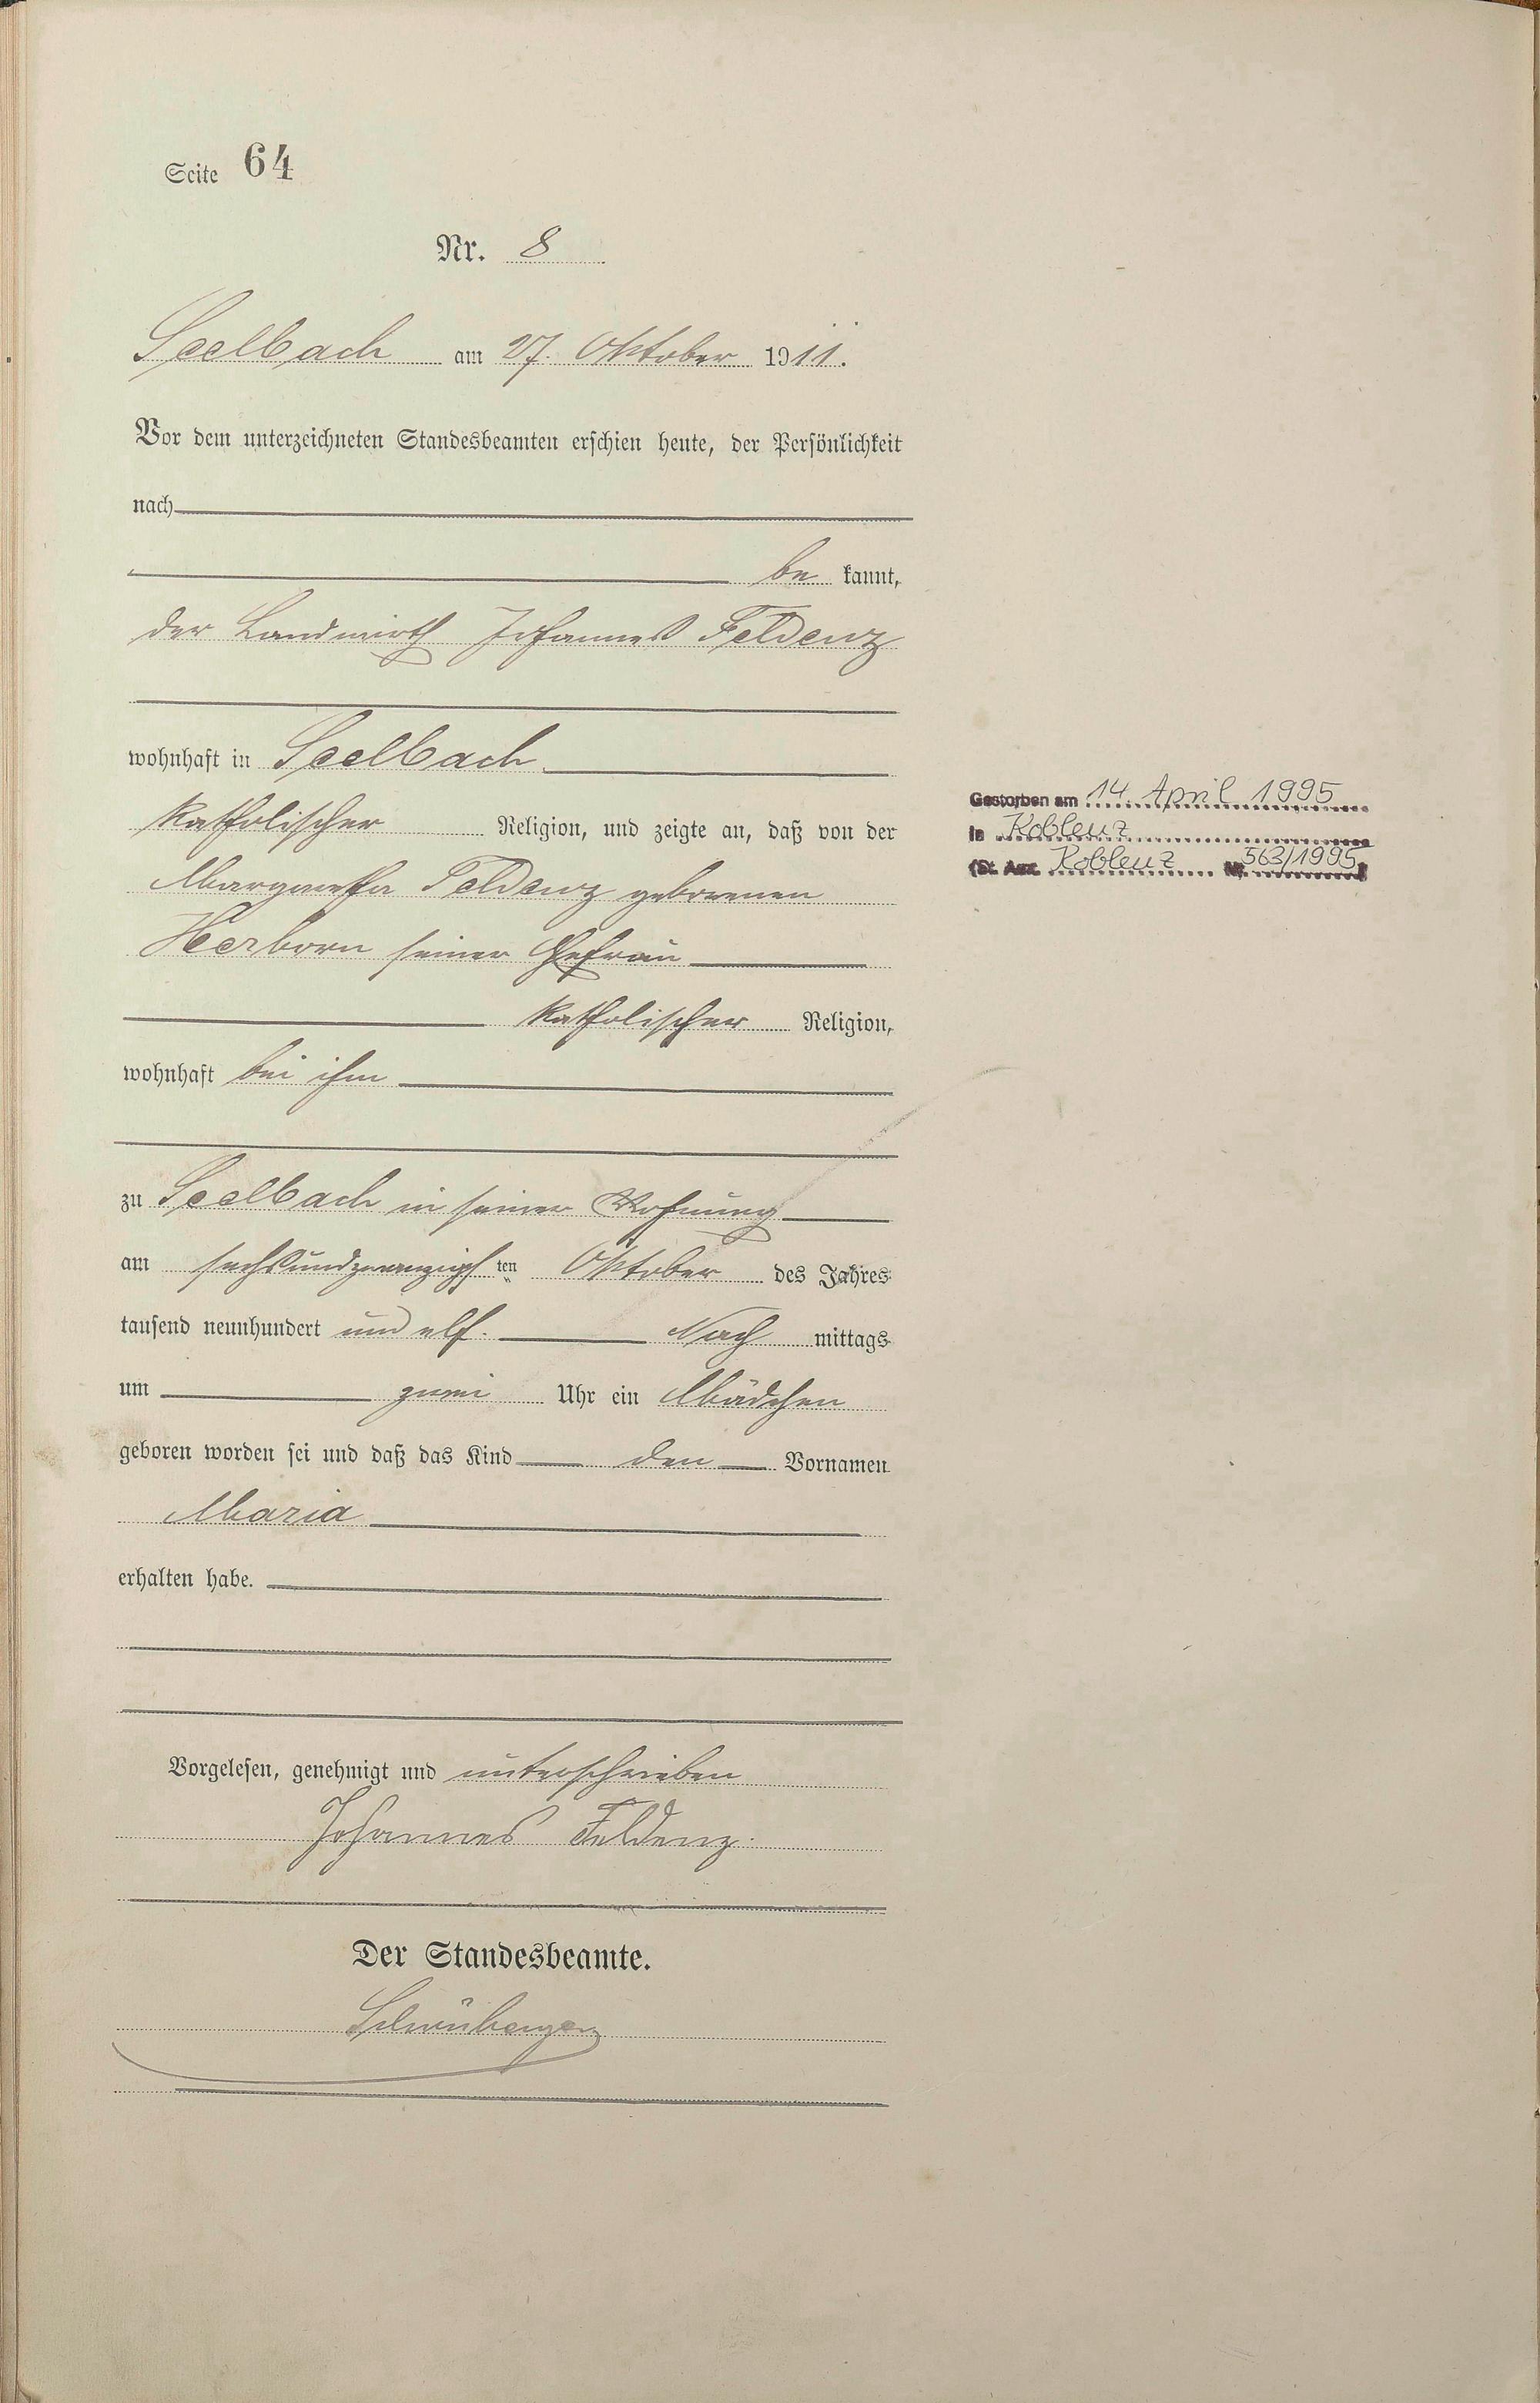 Seite 64
Nr. 8
Seelbach am 27. Oktober 1911.
Vor dem unterzeichneten Standesbeamten erschien heute, der Persönlichkeit
nach
be kannt,
der Landwirth Johannes Feldenz
wohnhaft in Seelbach
katholischer Religion, und zeigte an, daß von der
Margaretha Feldenz geborenen
Herborn seiner Ehefrau
katholischer Religion,
wohnhaft bei ihm
zu Seelbach in seiner Wohnung
am sechsundzwanzigsten Oktober des Jahres
tausend neunhundert und elf. Nach mittags
um zwei Uhr ein Mädchen
geboren worden sei und daß das Kind den Vornamen
Maria
erhalten habe.
Vorgelesen, genehmigt und unterschrieben
Johannes Feldenz.
Der Standesbeamte.
Gestorben am 14. April 1995
in Koblenz
(St. Amt Koblenz Nr. 563/1995)